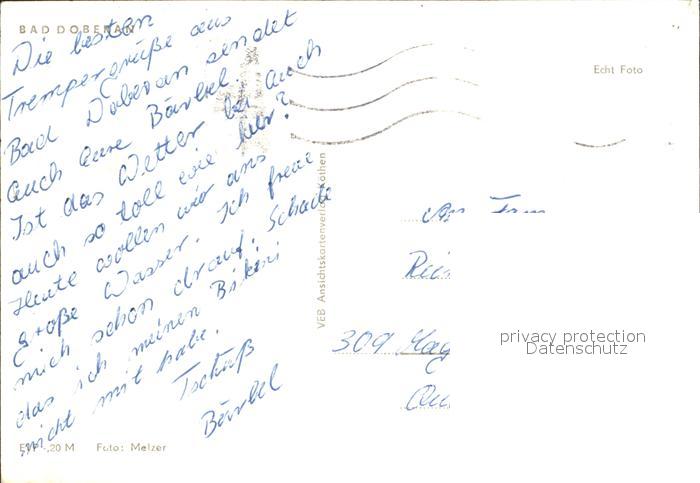 BAD DOBERAN
Die besten
Trempergrüße aus
Bad Doberan sendet
auch eure Bärbel.
Ist das Wetter bei Auch
auch so toll wie hier?
Heute wollen wir ans
große Wasser. Ich freue
mich schon drauf. Schade
das ich meinen Bikini
nicht mit habe.
Tschüß
Bärbel
EVP -,20 M Foto: Melzer
VEB Ansichtskartenverlag Köthen
Echt Foto
An Fam
309 Mag
privacy protection
Datenschutz